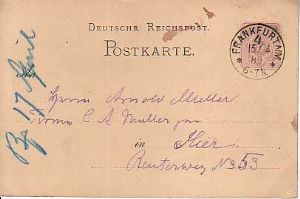 DEUTSCHE REICHSPOST.
POSTKARTE.
FRANKFURT A.M.
4
15/4
6-7N.
17 April
Herrn Arnold Muller
Firma C A Muller jun
in Hier
Reuterweg No 53